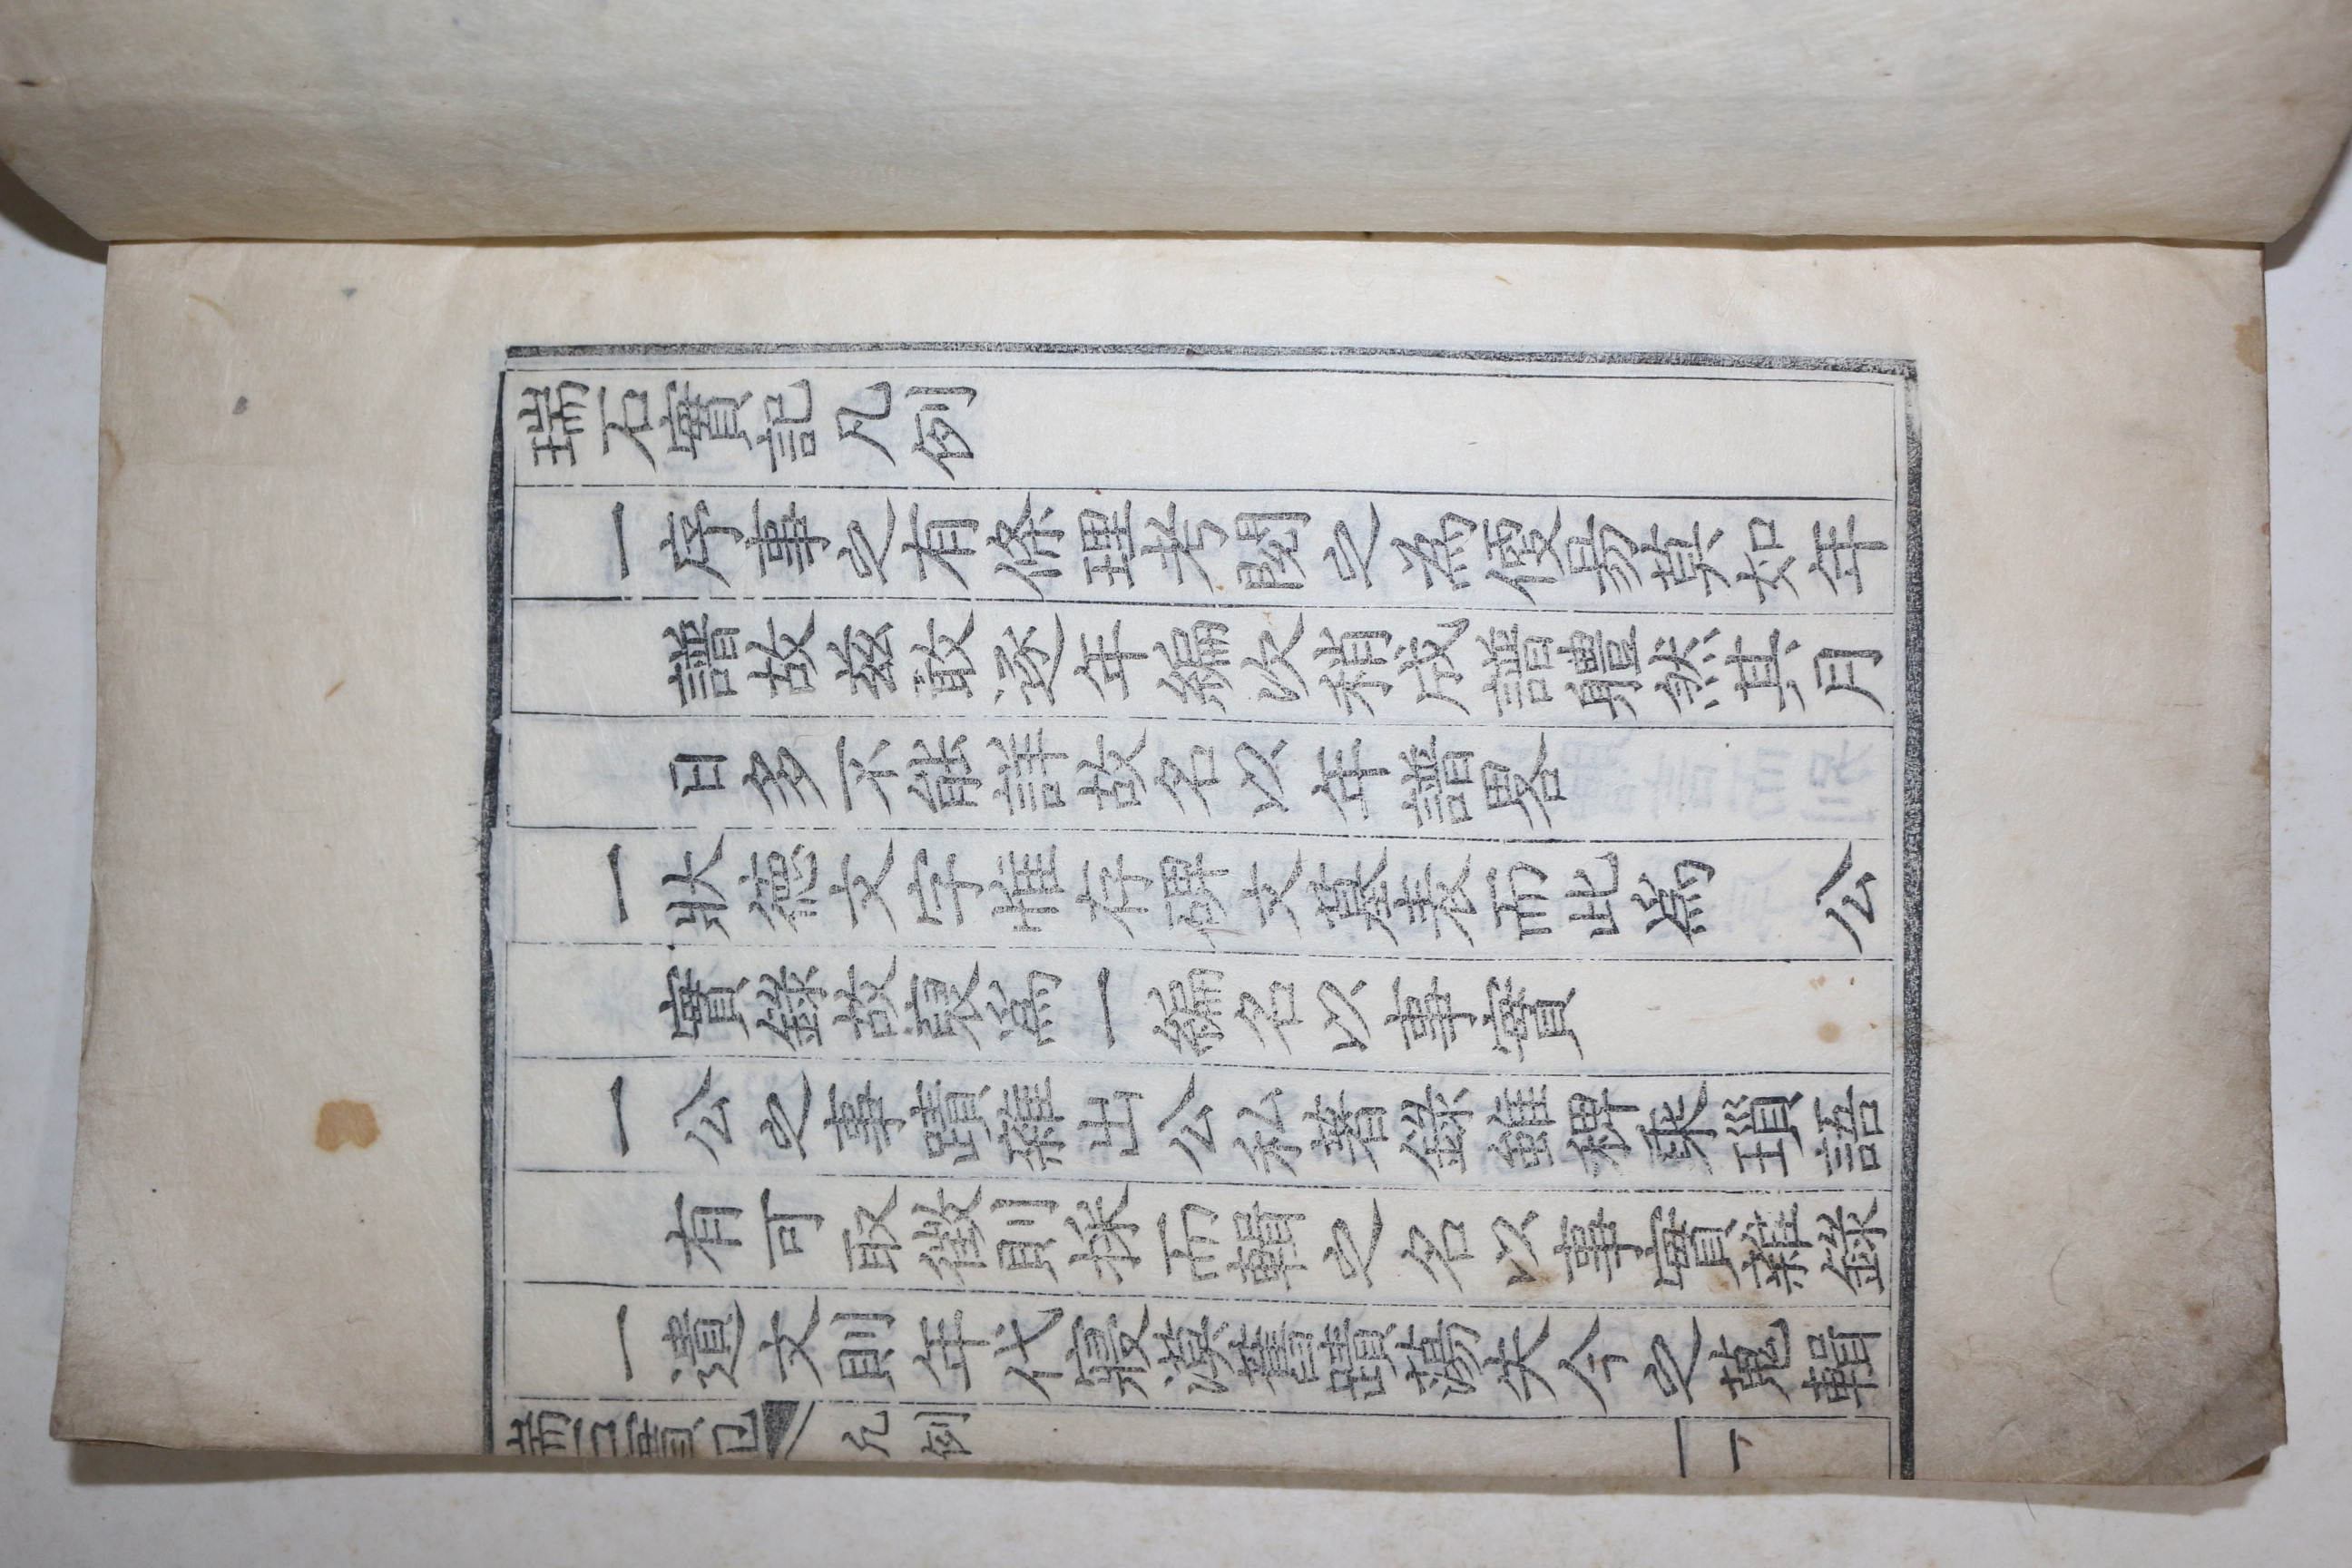 瑞石實記凡例
一序事之有條理考閱之為便易莫如年
譜故茲敢逐年編次稍成譜軆然其月
日多不能詳故名以年譜畧
一狀徳文字惟存碑文墓表而此爲 公
實錄故裒爲一編名以事實
一公之事蹟雜出公私著錄雖稗乘瑣語
有可取徵則採而輯之名以事實雜錄
一遺文則年代寢漠舊蹟蕩失今之蒐輯
瑞石實記 凡例 一